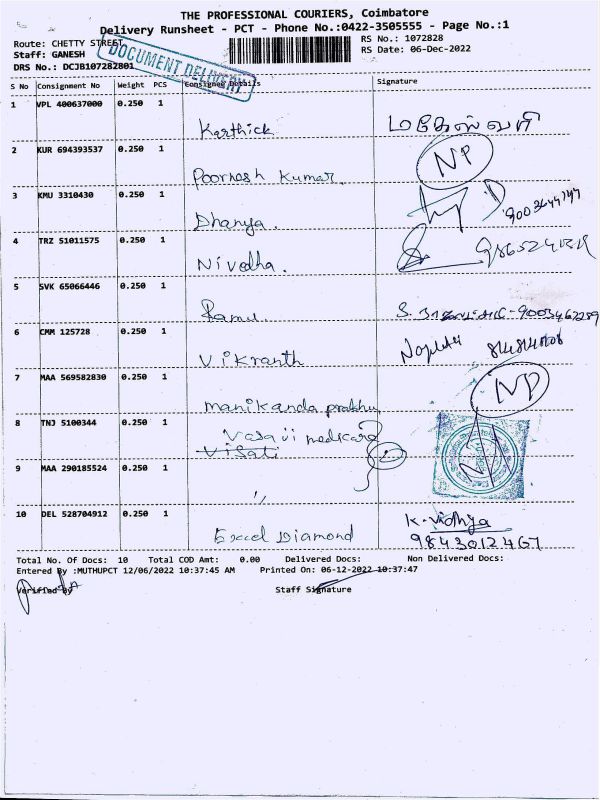 THE PROFESSIONAL COURIERS, Coimbatore
Delivery Runsheet - PCT - Phone No.:0422-3505555 - Page No.:1
Route: CHETTY STREET
RS No.: 1072828
Staff: GANESH
RS Date: 06-Dec-2022
DRS No.: DCJB107282801
DOCUMENT DELIVERY
S No Consignment No Weight PCS Consignee Details Signature
1 VPL 400637000 0.250 1
Karthick மகேஸ்வரி
2 KUR 694393537 0.250 1 NP
Poornesh Kumar.
3 KMU 3310430 0.250 1
Dhanya.
4 TRZ 51011575 0.250 1
Nivedha.
5 SVK 65066446 0.250 1
Ramu S. 9003467289
6 CMM 125728 0.250 1
Vikranth
7 MAA 569582830 0.250 1 NP
manikanda prabhu
8 TNJ 5100344 0.250 1
Vasavi medicare
9 MAA 290185524 0.250 1
"
10 DEL 528704912 0.250 1 K. Vidhya
Excel Diamond 9843012467
Total No. Of Docs: 10 Total COD Amt: 0.00 Delivered Docs: Non Delivered Docs:
Entered By :MUTHUPCT 12/06/2022 10:37:45 AM Printed On: 06-12-2022 10:37:47
Verified By Staff Signature